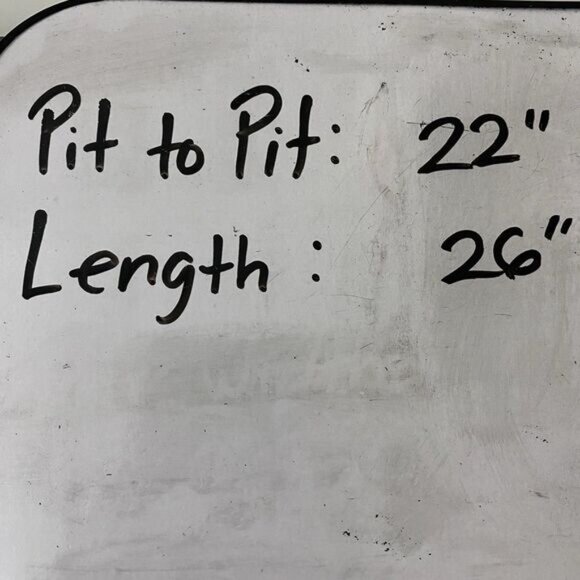 Pit to Pit: 22"
Length : 26"